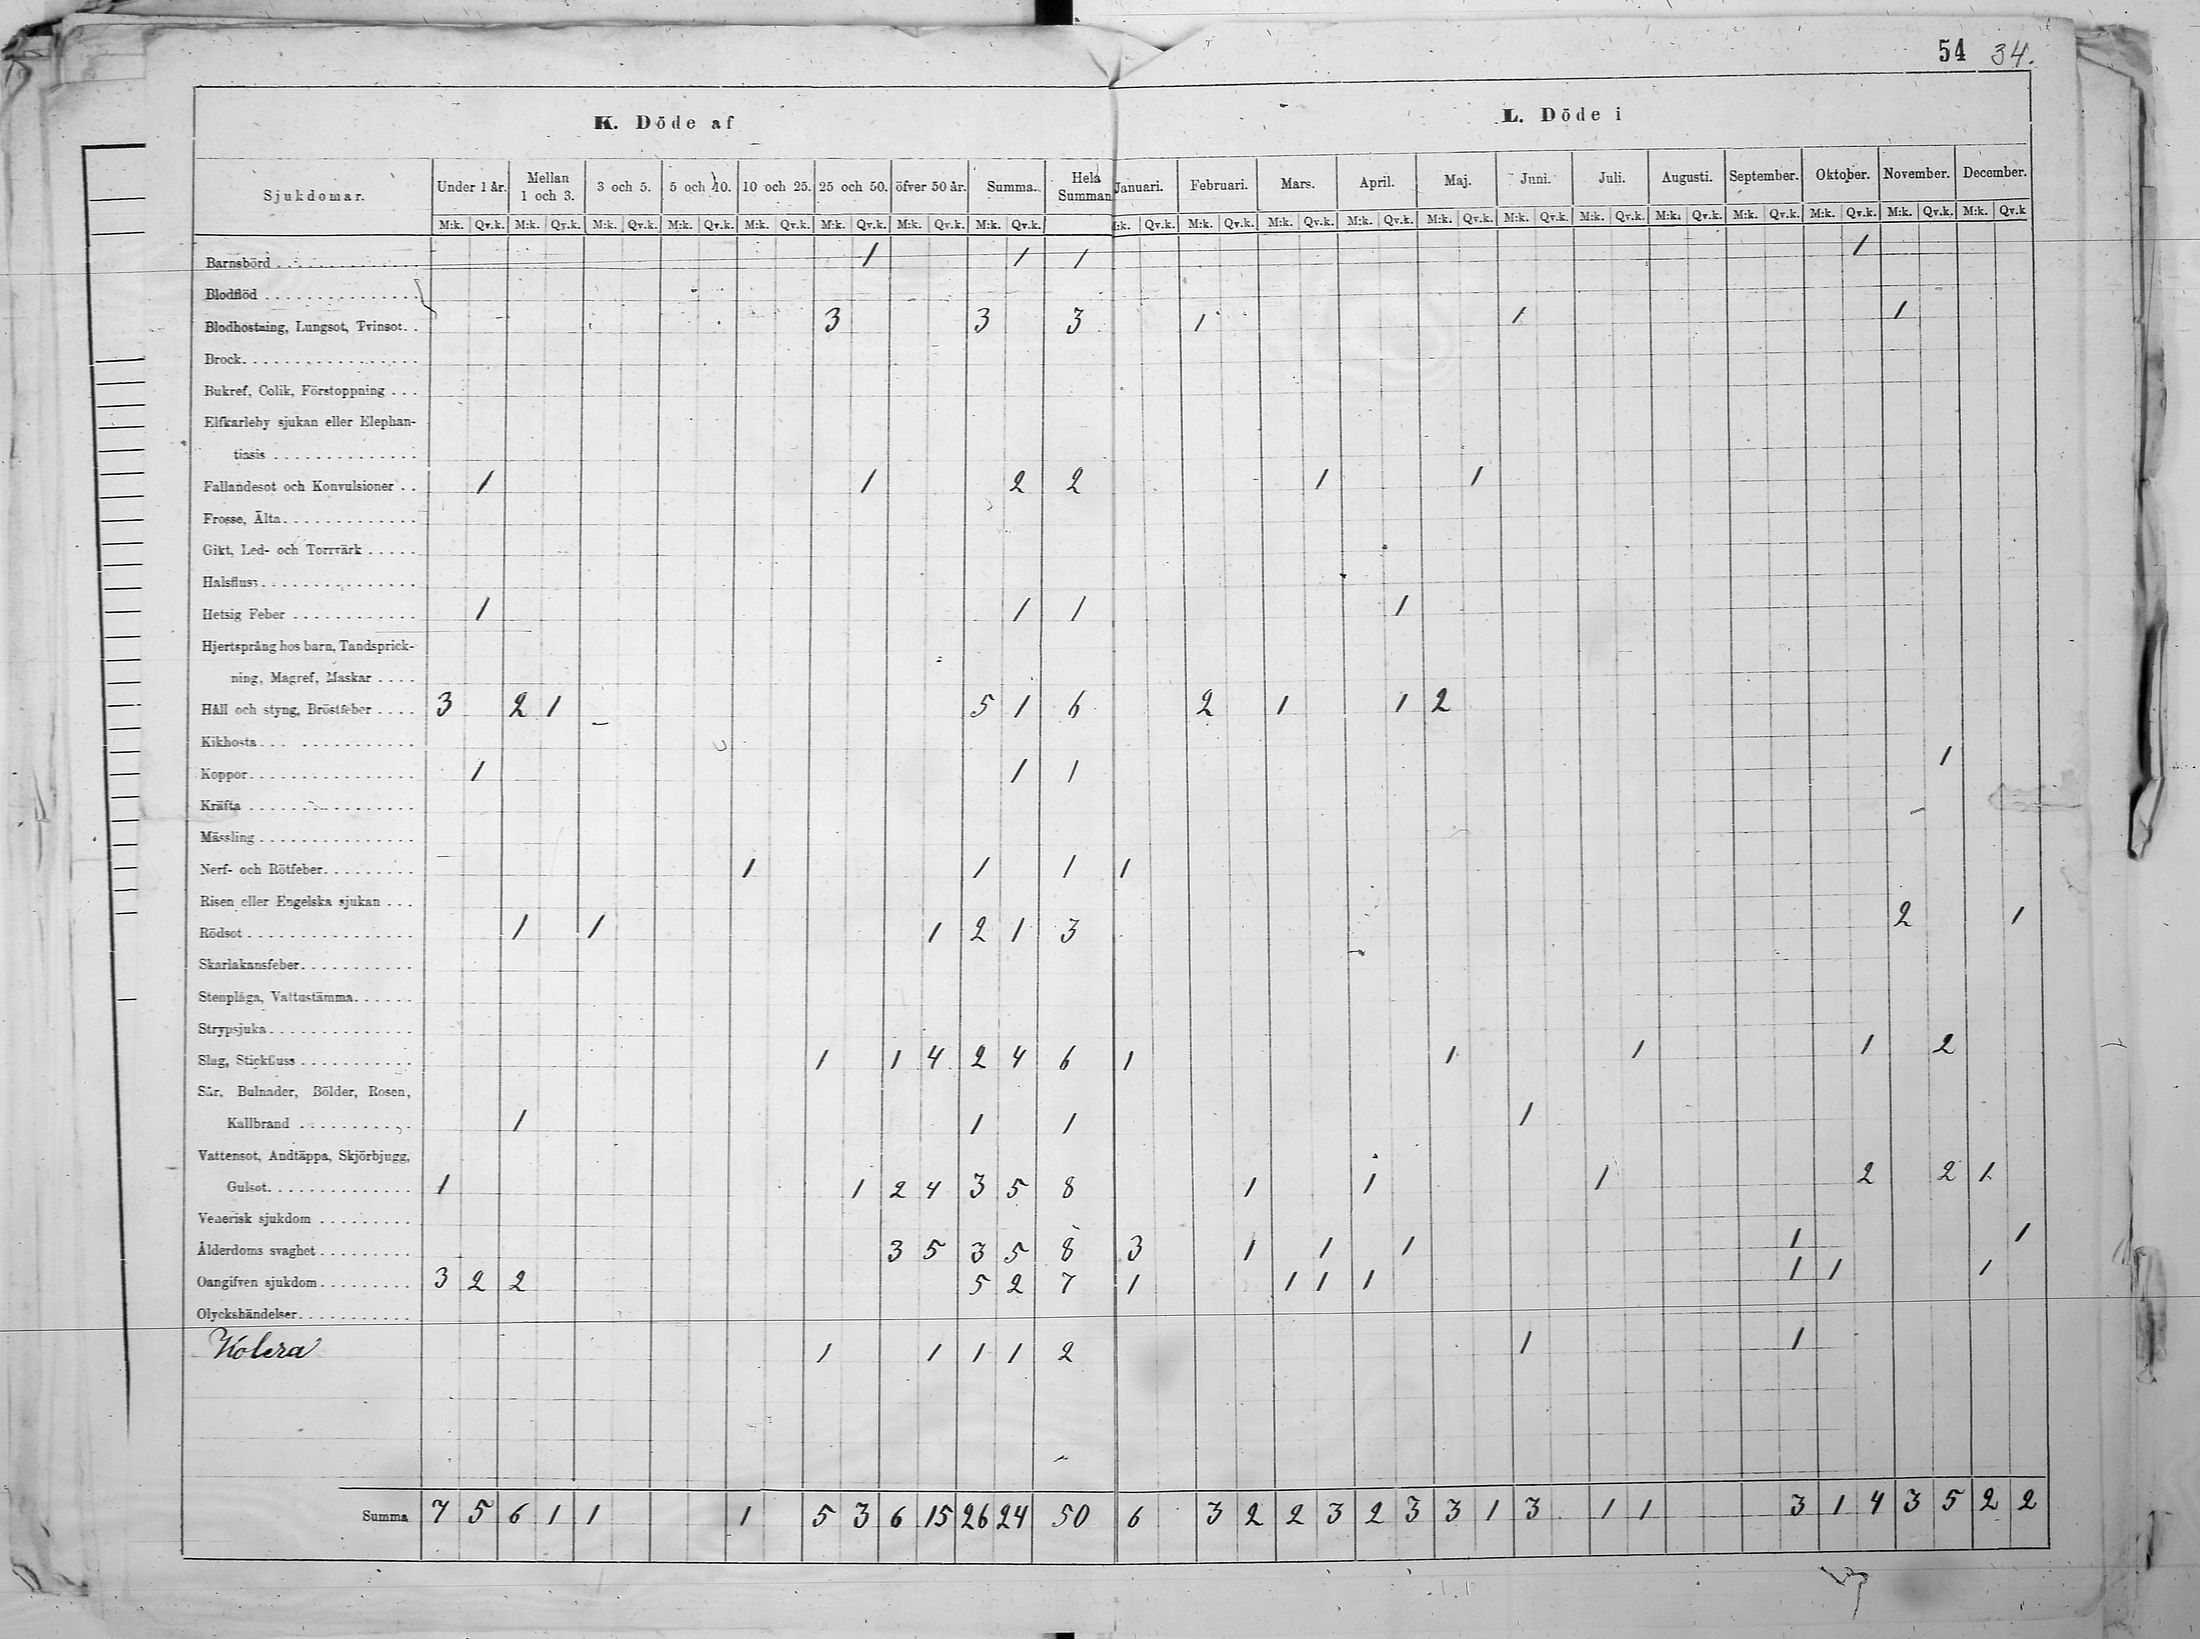 54 34.
K. Döde af L. Döde i
Sjukdomar. Under 1 år. Mellan 1 och 3. 3 och 5. 5 och 10. 10 och 25. 25 och 50. öfver 50 år. Summa. Hela Summan Januari. Februari. Mars. April. Maj. Juni. Juli. Augusti. September. Oktober. November. December.
M:k. Qv.k. M:k. Qv.k. M:k. Qv.k. M:k. Qv.k. M:k. Qv.k. M:k. Qv.k. M:k. Qv.k. M:k. Qv.k. :k. Qv.k. M:k. Qv.k. M:k. Qv.k. M:k. Qv.k. M:k. Qv.k. M:k. Qv.k. M:k. Qv.k. M:k. Qv.k. M:k. Qv.k. M:k. Qv.k. M:k. Qv.k. M:k. Qv.k
Barnsbörd 1 1 1 1
Blodflöd
Blodhostning, Lungsot, Tvinsot. 3 3 3 1 1 1
Brock
Bukref, Colik, Förstoppning
Elfkarleby sjukan eller Elephan-
tiasis
Fallandesot och Konvulsioner 1 1 2 2 1 1
Frosse, Älta
Gikt, Led- och Torrvärk
Halsfluss
Hetsig Feber 1 1 1 1
Hjertsprång hos barn, Tandsprick-
ning, Magref, Maskar
Håll och styng, Bröstfeber 3 2 1 5 1 6 2 1 1 2
Kikhosta
Koppor 1 1 1 1
Kräfta
Mässling
Nerf- och Rötfeber 1 1 1 1
Risen eller Engelska sjukan
Rödsot 1 1 1 2 1 3 2 1
Skarlakansfeber
Stenplåga, Vattustämma
Strypsjuka
Slag, Stickfluss 1 1 4 2 4 6 1 1 1 1 2
Sår, Bulnader, Bölder, Rosen,
Kallbrand 1 1 1 1
Vattensot, Andtäppa, Skjörbjugg,
Gulsot 1 1 2 4 3 5 8 1 1 1 2 2 1
Venerisk sjukdom
Ålderdoms svaghet 3 5 3 5 8 3 1 1 1 1 1
Oangifven sjukdom 3 2 2 5 2 7 1 1 1 1 1 1 1
Olyckshändelser
Kolera 1 1 1 1 2 1 1
Summa 7 5 6 1 1 1 5 3 6 15 26 24 50 6 3 2 2 3 2 3 3 1 3 1 1 3 1 4 3 5 2 2